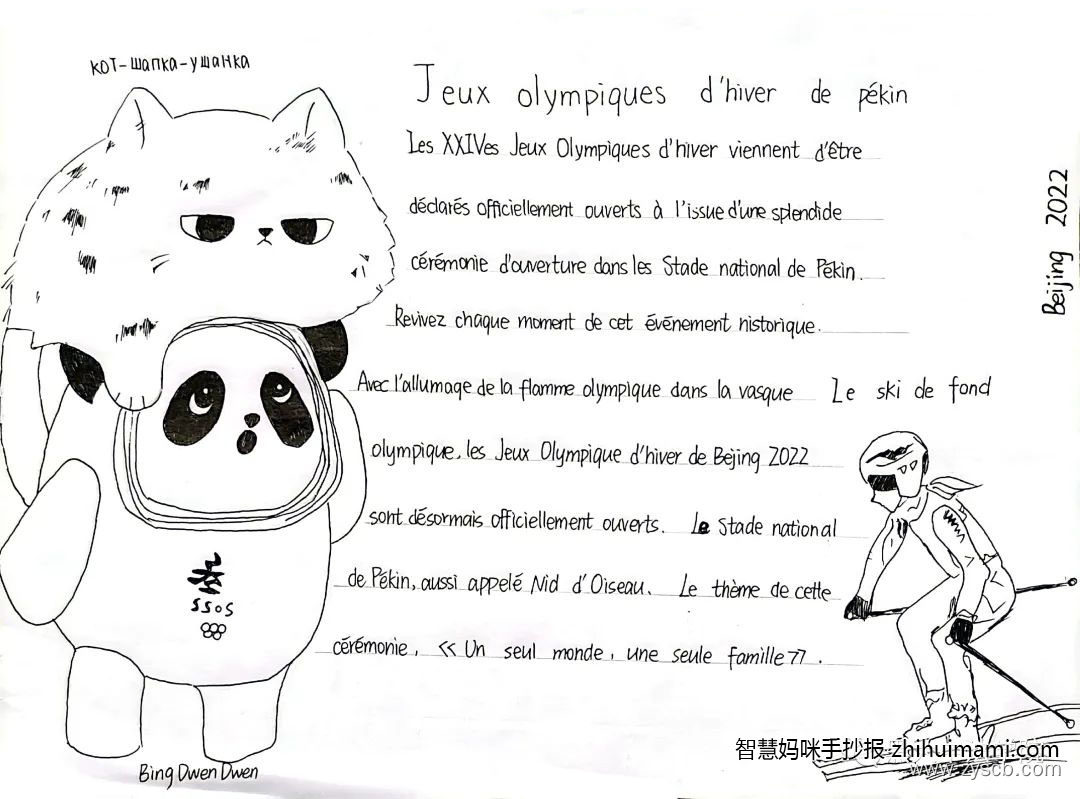 кот-шапка-ушанка
Jeux olympiques d'hiver de pékin
Les XXIVes Jeux Olympiques d'hiver viennent d'être
déclarés officiellement ouverts à l'issue d'une splendide
cérémonie d'ouverture dans les Stade national de Pékin.
Revivez chaque moment de cet événement historique.
Avec l'allumage de la flamme olympique dans la vasque
olympique, les Jeux Olympique d'hiver de Beijing 2022
sont désormais officiellement ouverts. Le Stade national
de Pékin, aussi appelé Nid d'Oiseau. Le thème de cette
cérémonie, << Un seul monde, une seule famille >>.
Beijing 2022
Le ski de fond
SSOS
Bing Dwen Dwen
智慧妈咪手抄报-zhihuimami.com
www.zyscb.com